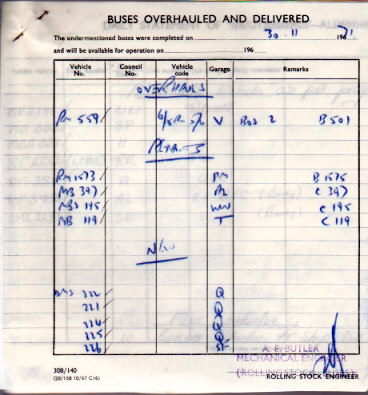 BUSES OVERHAULED AND DELIVERED
The undermentioned buses were completed on 30.11 1971
and will be available for operation on 196
Vehicle No. Council No. Vehicle code Garage Remarks
OVERHAULS
RM 559 V BOS 2 B501
REPAINTS
RM 1573 PM B 1575
MB 397 AL C 397
MBS 195 WW C 195
MB 119 T C 119
NEW
DMS 222 Q
221 Q
224 Q
225 Q
226 SF
A. E. BUTLER
MECHANICAL ENGINEER
(ROLLING STOCK
308/140
(20/150 10/67 C16)
ROLLING STOCK ENGINEER